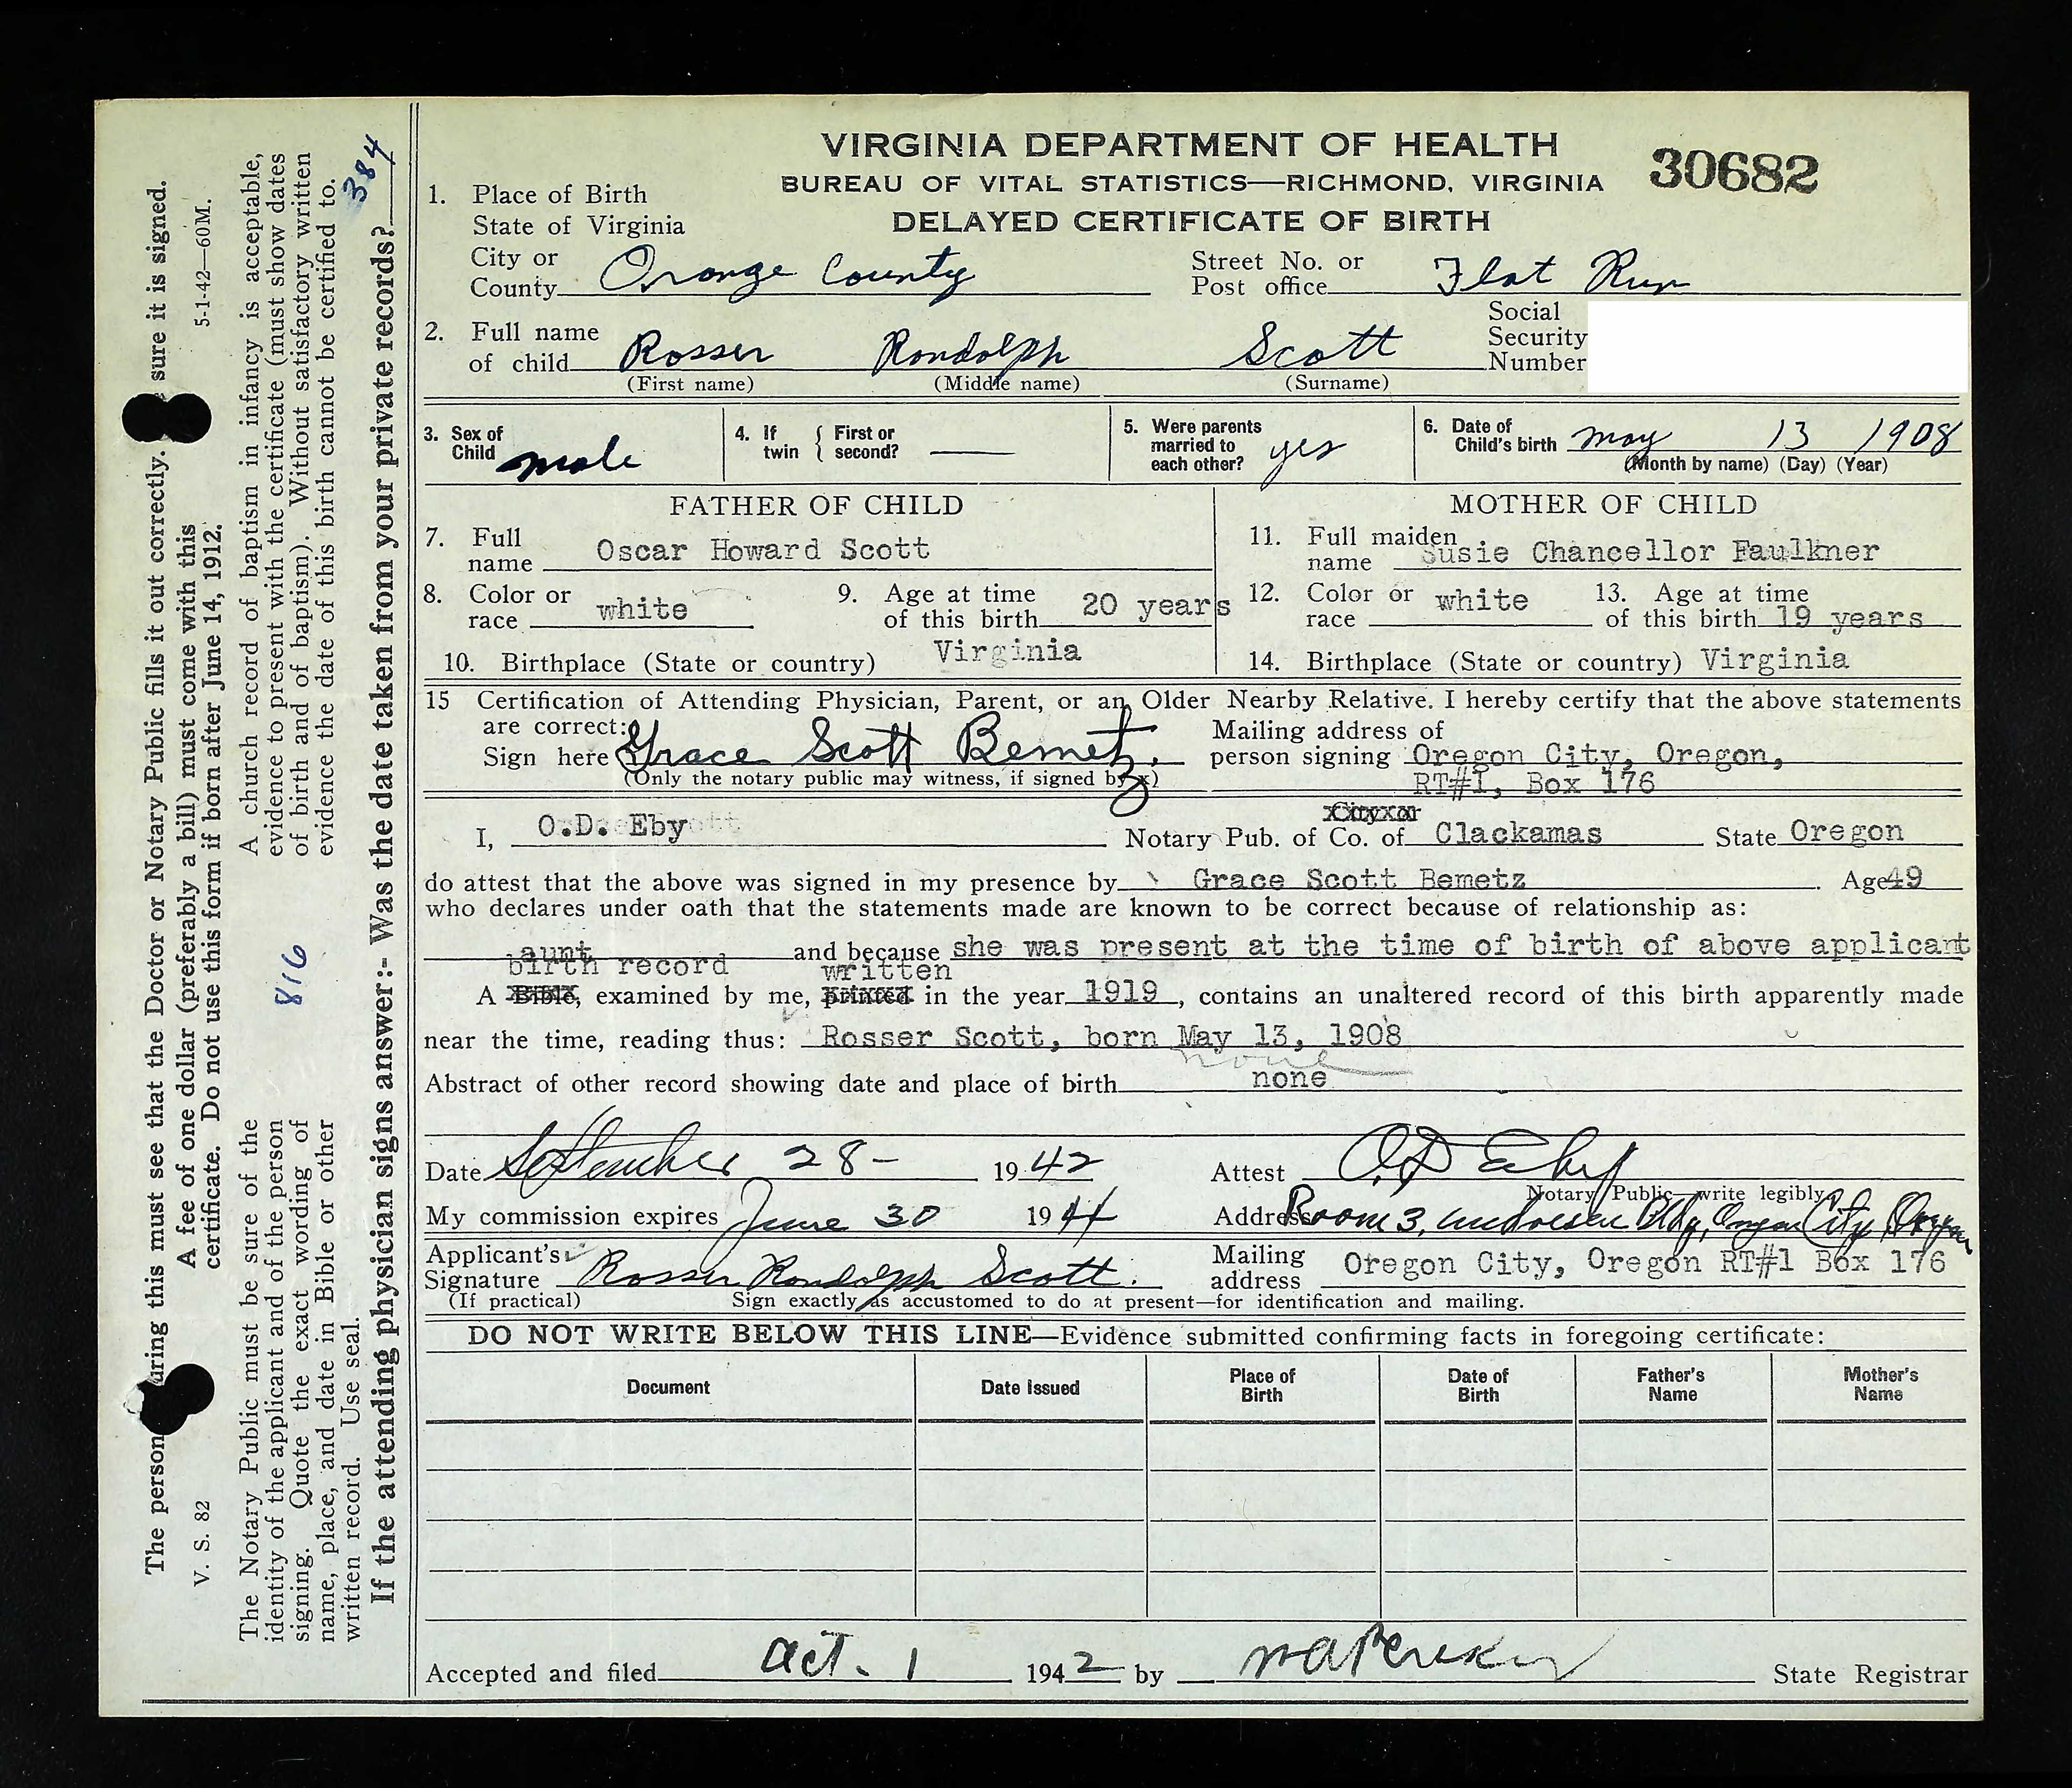 VIRGINIA DEPARTMENT OF HEALTH
BUREAU OF VITAL STATISTICS—RICHMOND, VIRGINIA
DELAYED CERTIFICATE OF BIRTH
30682
1. Place of Birth
State of Virginia
City or County Orange County Street No. or Post office Flat Run
2. Full name of child Rosser Randolph Scott Social Security Number
(First name) (Middle name) (Surname)
3. Sex of Child male 4. If twin { First or second? — 5. Were parents married to each other? yes 6. Date of Child's birth may 13 1908
(Month by name) (Day) (Year)
FATHER OF CHILD
7. Full name Oscar Howard Scott
8. Color or race white 9. Age at time of this birth 20 years
10. Birthplace (State or country) Virginia
MOTHER OF CHILD
11. Full maiden name Susie Chancellor Faulkner
12. Color or race white 13. Age at time of this birth 19 years
14. Birthplace (State or country) Virginia
15 Certification of Attending Physician, Parent, or an Older Nearby Relative. I hereby certify that the above statements
are correct:
Sign here Grace Scott Bemetz.
(Only the notary public may witness, if signed by x)
Mailing address of
person signing Oregon City, Oregon,
RT#1, Box 176
I, O.D. Eby Notary Pub. of Co. of Clackamas State Oregon
do attest that the above was signed in my presence by Grace Scott Bemetz. Age 49
who declares under oath that the statements made are known to be correct because of relationship as:
aunt and because she was present at the time of birth of above applicant
birth record written
A Bible, examined by me, printed in the year 1919, contains an unaltered record of this birth apparently made
near the time, reading thus: Rosser Scott, born May 13, 1908
none
Abstract of other record showing date and place of birth none
Date September 28- 1942 Attest O.D. Eby
Notary Public—write legibly.
My commission expires June 30 1944 Address Room 3, Bldg, Oregon City, Oregon
Applicant's Signature Rosser Randolph Scott. Mailing address Oregon City, Oregon RT#1 Box 176
(If practical) Sign exactly as accustomed to do at present—for identification and mailing.
DO NOT WRITE BELOW THIS LINE—Evidence submitted confirming facts in foregoing certificate:
Document Date Issued Place of Birth Date of Birth Father's Name Mother's Name
Accepted and filed Oct. 1 1942 by State Registrar
The person uring this must see that the Doctor or Notary Public fills it out correctly. sure it is signed.
A fee of one dollar (preferably a bill) must come with this
certificate. Do not use this form if born after June 14, 1912.
V. S. 82
5-1-42—60M.
The Notary Public must be sure of the
identity of the applicant and of the person
signing. Quote the exact wording of
name, place, and date in Bible or other
written record. Use seal.
816
A church record of baptism in infancy is acceptable,
evidence to present with the certificate (must show dates
of birth and of baptism). Without satisfactory written
evidence the date of this birth cannot be certified to.
If the attending physician signs answer:- Was the date taken from your private records?
384